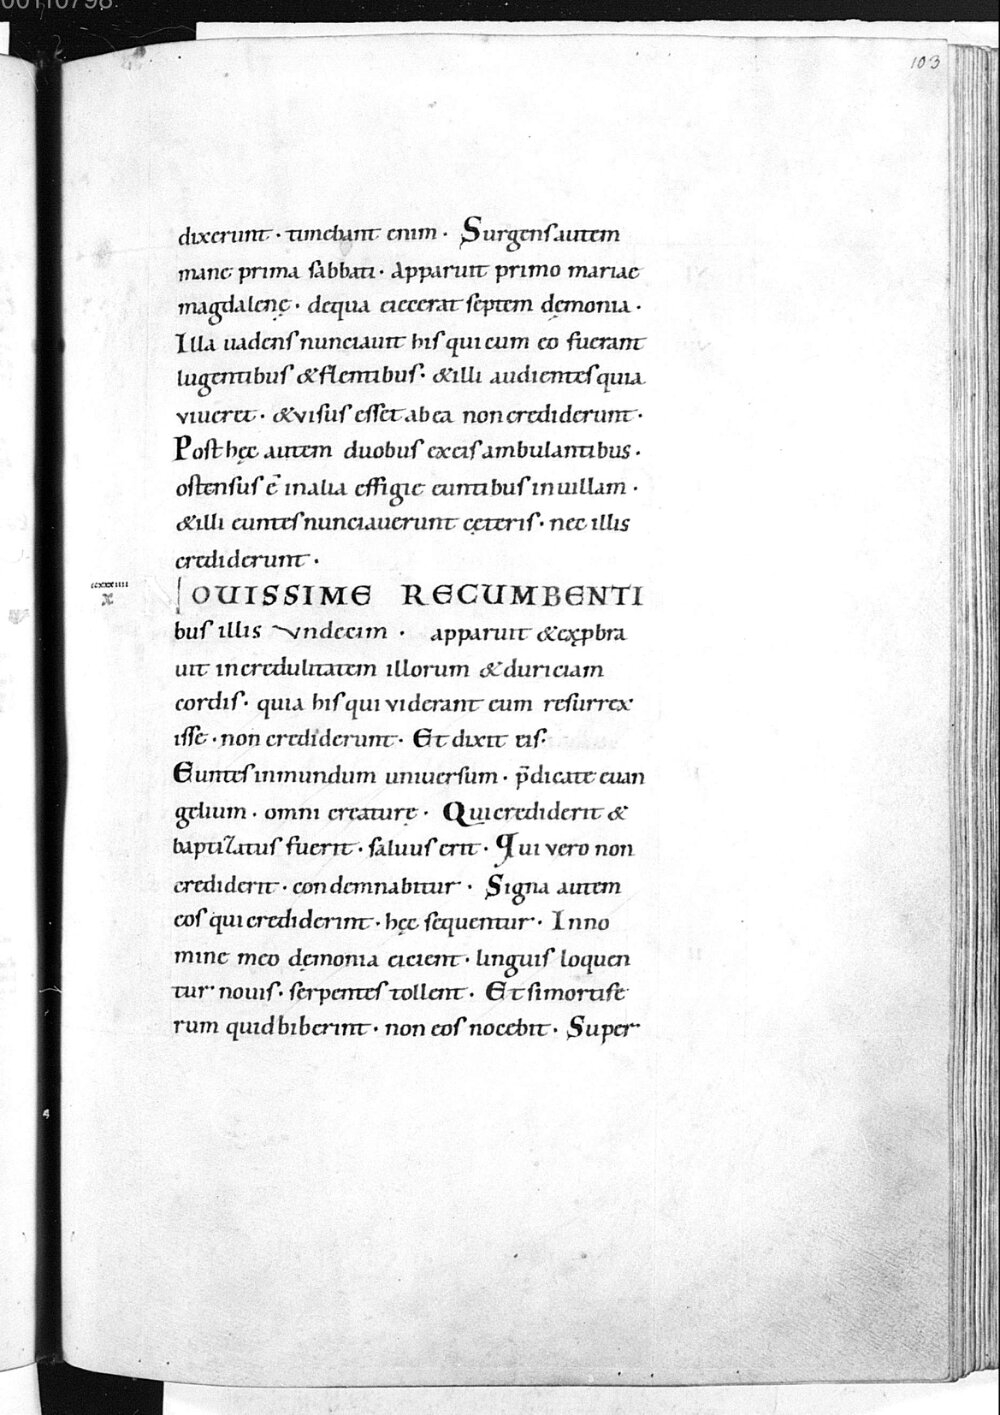 00110798
103
dixerunt · timebant enim · Surgens autem
mane prima sabbati · Apparuit primo mariae
magdalenę · de qua eiecerat septem dęmonia ·
Illa uadens nunciauit his qui cum eo fuerant
lugentibus & flentibus · & illi audientes quia
viueret · & visus esset ab ea non crediderunt ·
Post hęc autem duobus ex eis ambulantibus ·
ostensus ē in alia effigie euntibus in uillam ·
& illi euntes nunciauerunt cęteris · nec illis
crediderunt ·
ccxxxiiii
x
OUISSIME RECUMBENTI
bus illis vndecim · apparuit & exꝓbra
uit incredulitatem illorum & duriciam
cordis · quia his qui viderant eum resurrex
isse · non crediderunt · Et dixit eis ·
Euntes in mundum uniuersum · p̄dicate euan
gelium · omni creaturę · Qui crediderit &
baptizatus fuerit · saluus erit · Qui vero non
crediderit · condemnabitur · Signa autem
eos qui crediderint · hęc sequentur · In no
mine meo dęmonia eicient · linguis loquen
tur nouis · serpentes tollent · Et si mortife
rum quid biberint · non eos nocebit · Super